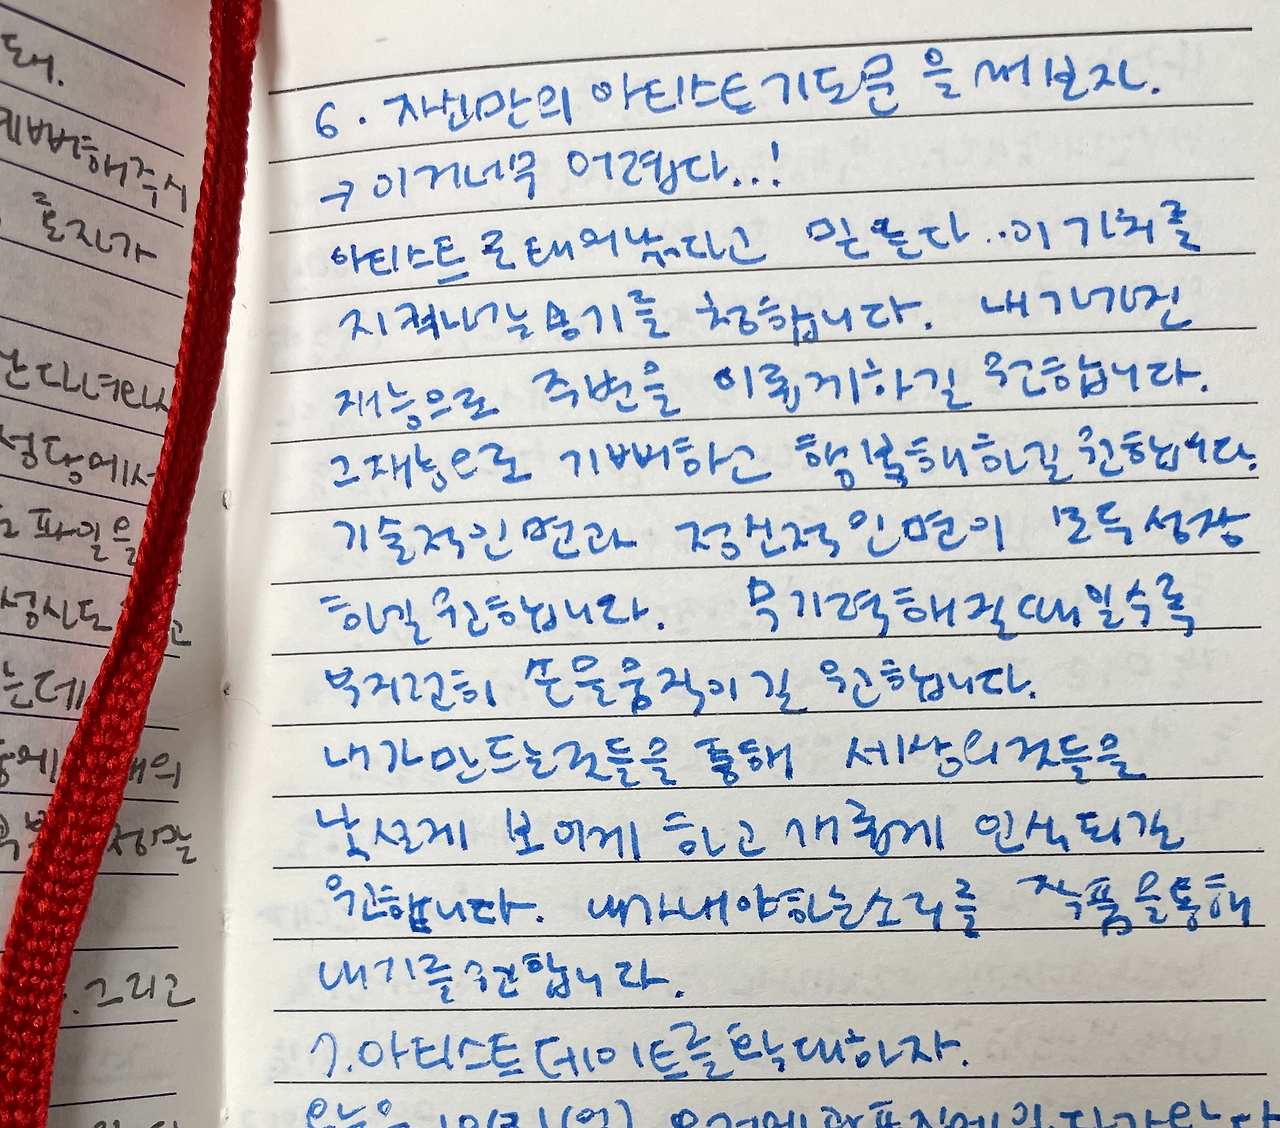 돼.
예뻐해주시
로자가
난다녀와서
성당에서
파일을
성시도
는데
의
그리고
6. 자신만의 아티스트기도문을 써보자.
→ 이거너무 어렵다..!
아티스트로 태어났다고 믿는다..이 가치를
지켜나가는 용기를 청합니다. 내가가진
재능으로 주변을 이롭게하길 원합니다.
그재능으로 기뻐하고 행복해하길원합니다.
기술적인면과 정신적인면이 모두성장
하길 원합니다. 무기력해질때일수록
부지런히 손을움직이길 원합니다.
내가만드는것들을 통해 세상의것들을
낯설게 보이게 하고 새롭게 인식되길
원합니다. 내가내야하는소리를 작품을통해
내기를 원합니다.
7. 아티스트데이트를 확대하자.
오늘은 10/31(월)